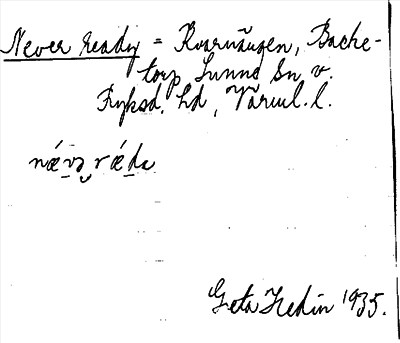 Never ready = Kvarnängen, Backe-
torp Sunne Sn v.
Fryksd. hd, Värml. l.
næ´və ræ´dɩ
Greta Hedin 1935.